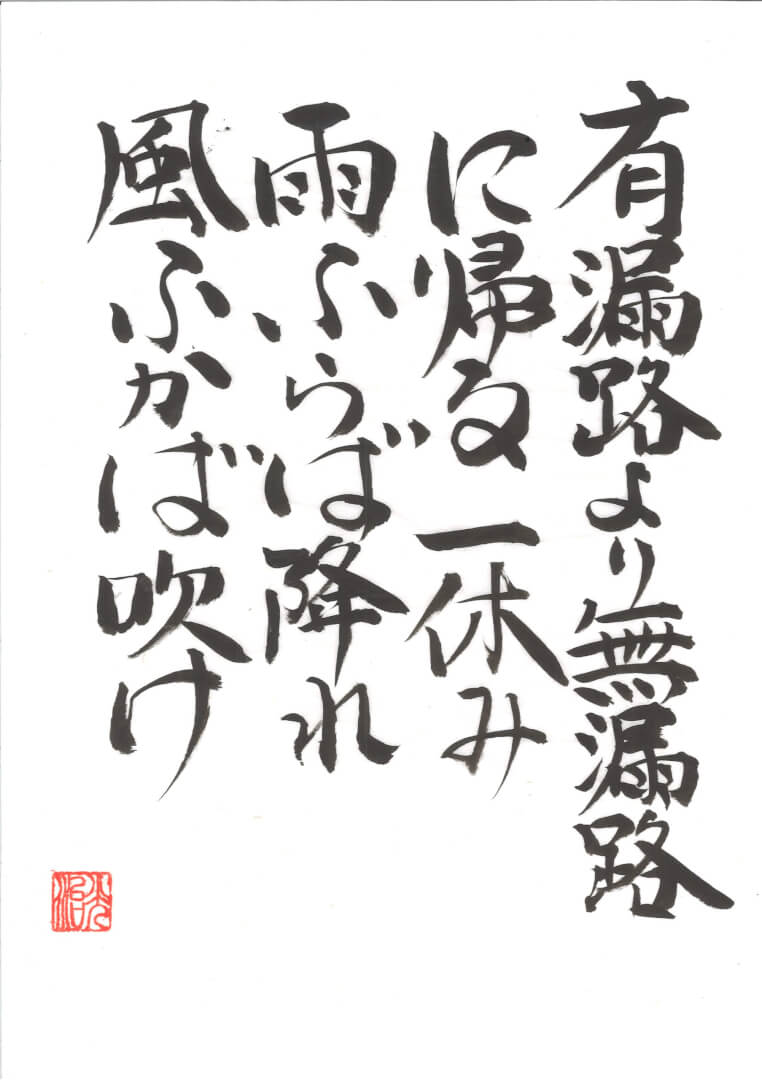 有漏路より無漏路
に帰る一休み
雨ふらば降れ
風ふかば吹け